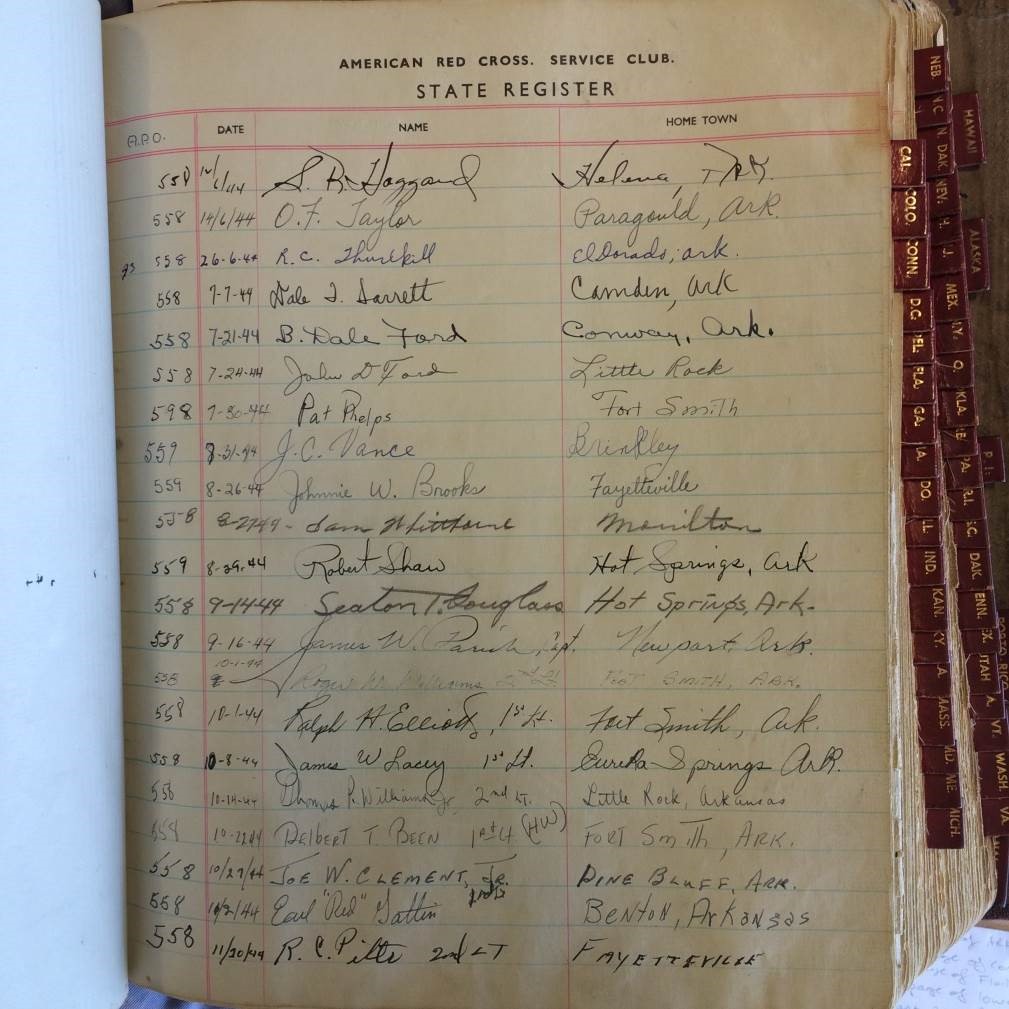 AMERICAN RED CROSS. SERVICE CLUB.
STATE REGISTER
A.P.O. DATE NAME HOME TOWN
558 S. R. Haggard Helena, Ark.
558 14/6/44 O.F. Taylor Paragould, Ark.
558 26-6-44 R.C. Thurlkill ElDorado, ark.
558 7-7-44 Dale Camden, Ark
558 7-21-44 B. Dale Ford Conway, Ark.
558 7-24-44 John D Ford Little Rock
598 7-30-44 Pat Phelps Fort Smith
559 8-21-44 J.C. Vance Brinkley
559 8-26-44 Johnnie W. Brooks Fayetteville
558 8-2744- Sam Morrilton
559 8-29-44 Robert Shaw Hot Springs, Ark
558 9-14-44 Seaton T. Douglass Hot Springs, Ark-
558 9-16-44 James W. Parish, Cpt. Newport, Ark.
10-1-44
558 Roger Williams Fort Smith, Ark.
558 10-1-44 Ralph H Elliott, 1st Lt. Fort Smith, Ark.
558 10-8-44 James W Lacey 1st Lt. Eureka Springs Ark.
558 10-14-44 Thomas P. Williams Jr 2nd Lt. Little Rock, Arkansas
558 10-2244 DELBERT T BEEN 1st Lt (HW) FORT SMITH, ARK.
558 10/27/44 JOE W. CLEMENT, JR. PINE BLUFF, ARK.
558 Earl "Red" Gattin BENTON, ARKANSAS
558 11/20/44 R. C. Pitts 2nd LT FAYETTEVILLE
NEB.
N.C.
N. DAK.
NEV.
J.
MEX.
O.
HAWAII
ALASKA
CAL.
COLO.
CONN.
D.C.
FLA.
GA.
IA.
IND.
KAN.
KY.
MASS.
MD.
ME.
MICH.
R.I.
DAK.
PORTO RICO
UTAH
VT.
WASH.
VA.